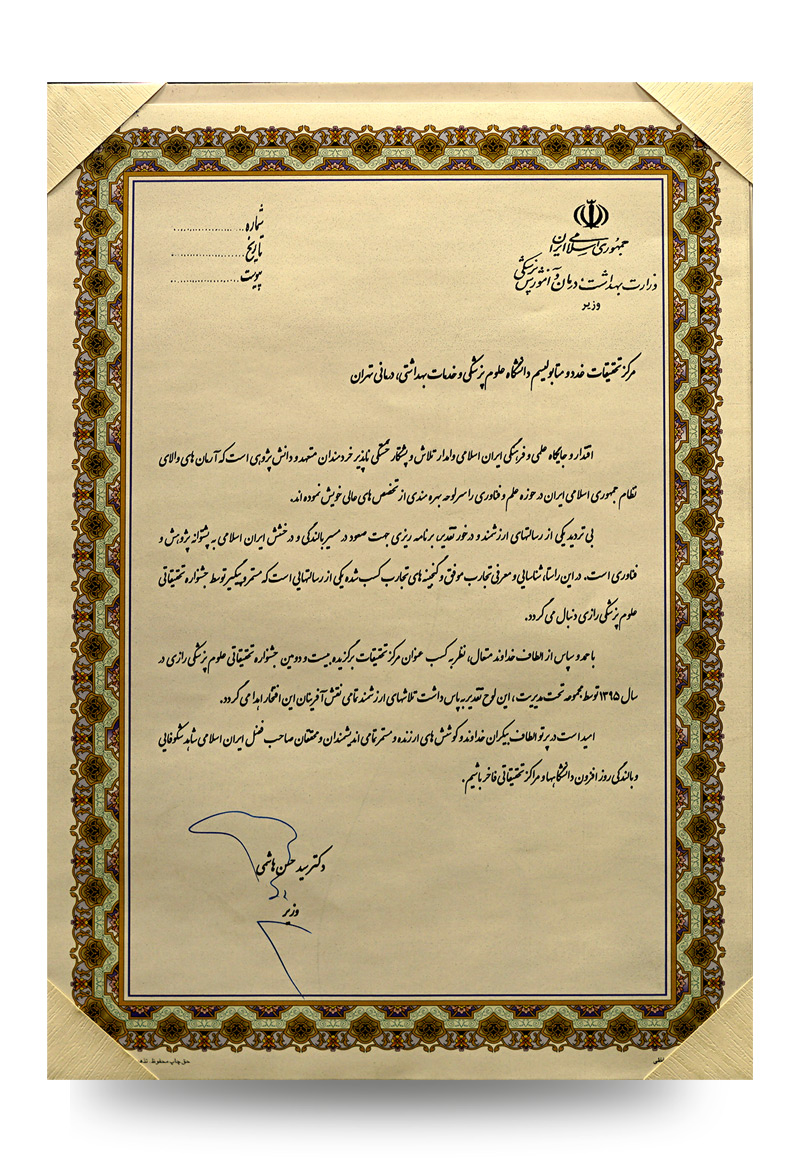 جمهوری اسلامی ایران
وزارت بهداشت، درمان و آموزش پزشکی
وزیر
شماره ......................
تاریخ ......................
پیوست ......................
مرکز تحقیقات غدد و متابولیسم دانشگاه علوم پزشکی و خدمات بهداشتی، درمانی تهران
اقتدار و جایگاه علمی و فرهنگی ایران اسلامی وامدار تلاش و پشتکار خستگی ناپذیر خردمندان متعهد و دانش پژوهی است که آرمان های والای
نظام جمهوری اسلامی ایران در حوزه علم و فناوری را سرلوحه بهره مندی از تخصص های عالی خویش نموده اند.
بی تردید یکی از رسالتهای ارزشمند و درخور تقدیر، برنامه ریزی جهت صعود در مسیر بالندگی و درخشش ایران اسلامی به پشتوانه پژوهش و
فناوری است. در این راستا، شناسایی و معرفی تجارب موفق و گنجینه های تجارب کسب شده یکی از رسالتهایی است که مستمر و پیگیر توسط جشنواره تحقیقاتی
علوم پزشکی رازی دنبال می گردد.
با حمد و سپاس از الطاف خداوند متعال، نظر به کسب عنوان مرکز تحقیقات برگزیده بیست و دومین جشنواره تحقیقاتی علوم پزشکی رازی در
سال ۱۳۹۵ توسط مجموعه تحت مدیریت، این لوح تقدیر به پاس داشت تلاشهای ارزشمند تمامی نقش آفرینان این افتخار اهدا می گردد.
امید است در پرتو الطاف بیکران خداوند و کوشش های ارزنده و مستمر تمامی اندیشمندان و محققان صاحب فضل ایران اسلامی شاهد شکوفایی
و بالندگی روز افزون دانشگاهها و مراکز تحقیقاتی فاخر باشیم.
دکتر سید حسن هاشمی
وزیر
حق چاپ محفوظ.